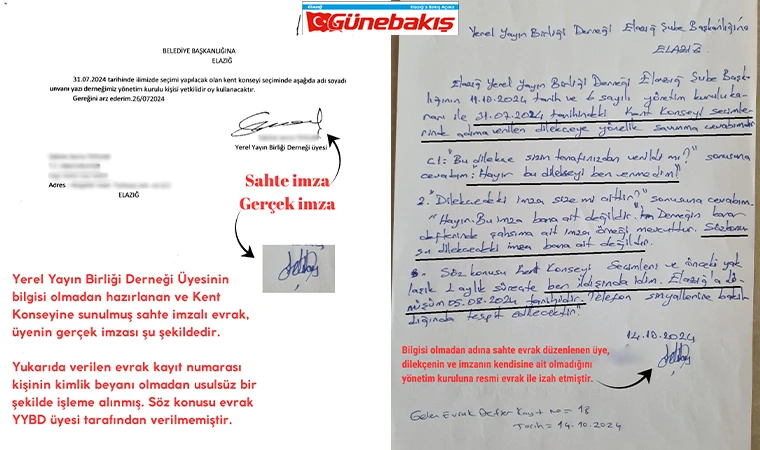 Günebakış
BELEDİYE BAŞKANLIĞINA
ELAZIĞ
31.07.2024 tarihinde ilimizde seçimi yapılacak olan kent konseyi seçiminde aşağıda adı soyadı
unvanı yazı derneğimiz yönetim kurulu kişisi yetkilidir oy kullanacaktır.
Gereğini arz ederim.26/072024
Yerel Yayın Birliği Derneği üyesi
Adres
ELAZIĞ
Sahte imza
Gerçek imza
Yerel Yayın Birliği Derneği Üyesinin
bilgisi olmadan hazırlanan ve Kent
Konseyine sunulmuş sahte imzalı evrak,
üyenin gerçek imzası şu şekildedir.
Yukarıda verilen evrak kayıt numarası
kişinin kimlik beyanı olmadan usulsüz bir
şekilde işleme alınmış. Söz konusu evrak
YYBD üyesi tarafından verilmemiştir.
Yerel Yayın Birliği Derneği Elazığ Şube Başkanlığına
ELAZIĞ
Elazığ Yerel Yayın Birliği Derneği Elazığ Şube Başk-
lığının 11.10.2024 tarih ve 6 sayılı yönetim kurulu ka-
rarı ile 31.07.2024 tarihindeki Kent Konseyi seçimle-
rinde adıma verilen dilekçeye yönelik savunma cevabımdır
C1: "Bu dilekçe sizin tarafınızdan verildi mi?" sorusuna
cevabım: "Hayır bu dilekçeyi ben vermedim"
2. "Dilekçedeki imza size mi aittir?" sorusuna cevabım.
"Hayır. Bu imza bana ait değildir." Derneğin karar
defterinde şahsıma ait imza örneği mevcuttur. Söz konu-
su dilekçedeki imza bana ait değildir.
3- Söz konusu Kent Konseyi Seçimleri ve önceki yak
laşık 1 aylık süreçte ben il dışında idim. Elazığ'a dö-
nüşüm 05.08.2024 tarihidir. Telefon sinyallerine bakıl
dığında tespit edilecektir"
14.10.2024
Bilgisi olmadan adına sahte evrak düzenlenen üye,
dilekçenin ve imzanın kendisine ait olmadığını
yönetim kuruluna resmi evrak ile izah etmiştir.
Gelen Evrak Defter Kayıt No = 18
Tarih = 14.10.2024